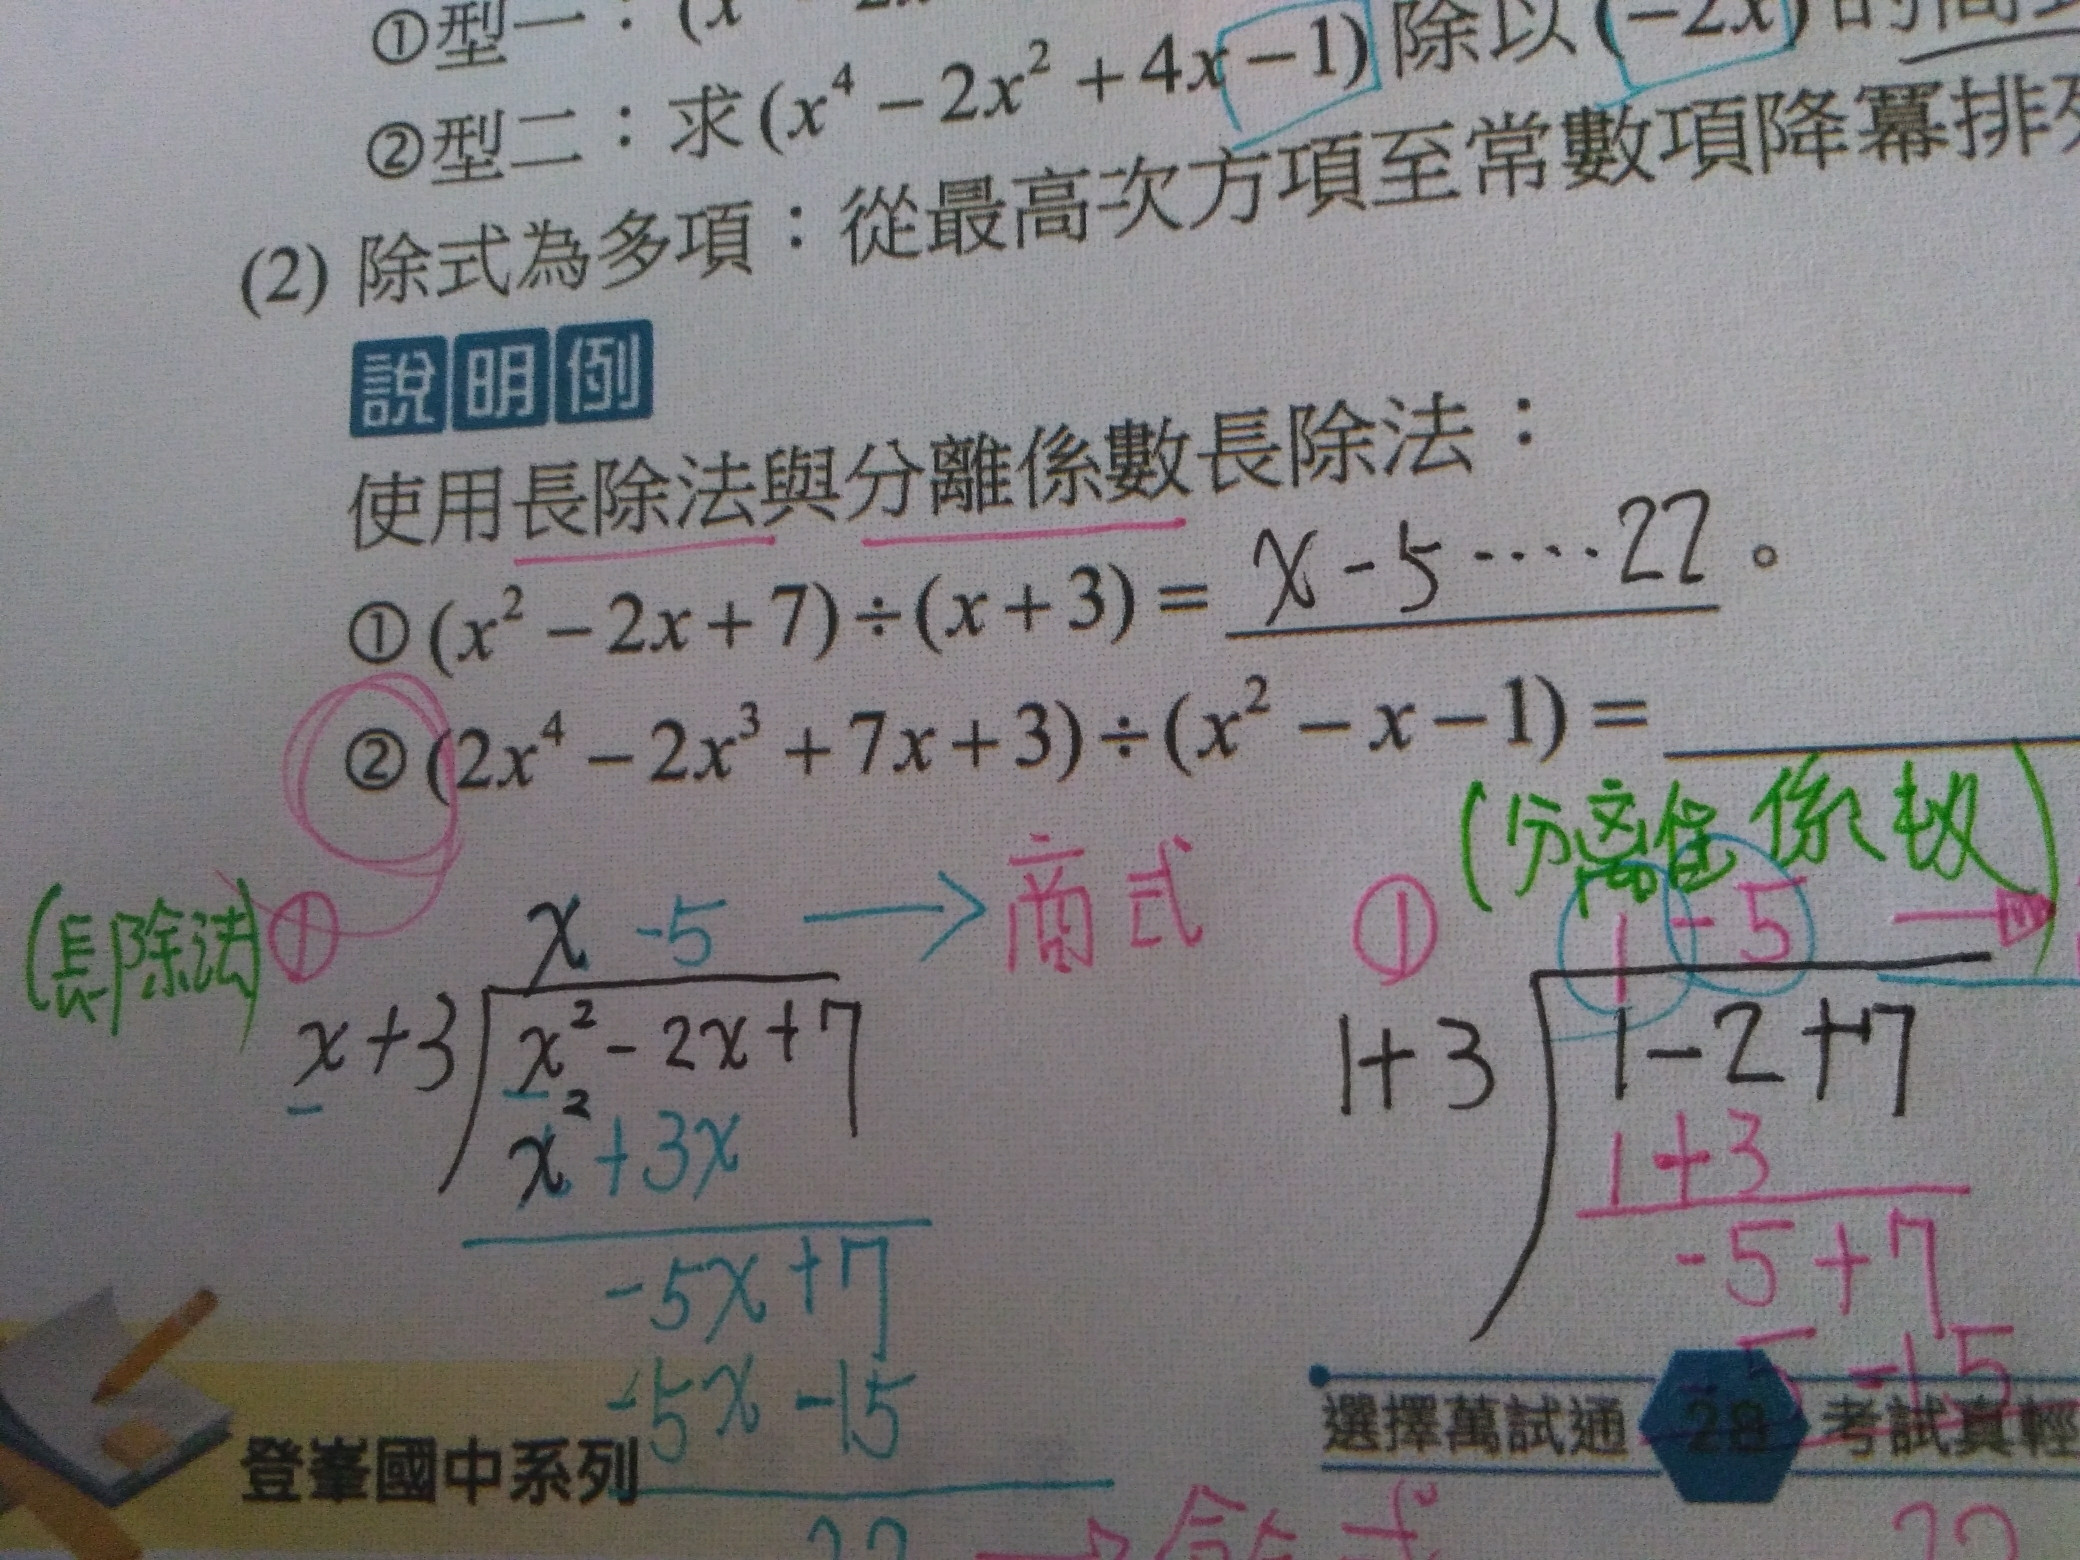 ①型一：(x
②型二：求(x⁴－2x²＋4x－1)除以(－2x)的商式
(2) 除式為多項：從最高次方項至常數項降冪排列
說明例
使用長除法與分離係數長除法：
①(x²－2x＋7)÷(x＋3)＝ x-5····22 。
②(2x⁴－2x³＋7x＋3)÷(x²－x－1)＝
(分離係數)
(長除法) ① x -5 → 商式
x+3 x²-2x+7
x²+3x
-5x+7
-5x-15
22 → 餘式
① 1 -5 →
1+3 1-2+7
1+3
-5+7
-5-15
22
登峯國中系列
選擇萬試通 28 考試真輕